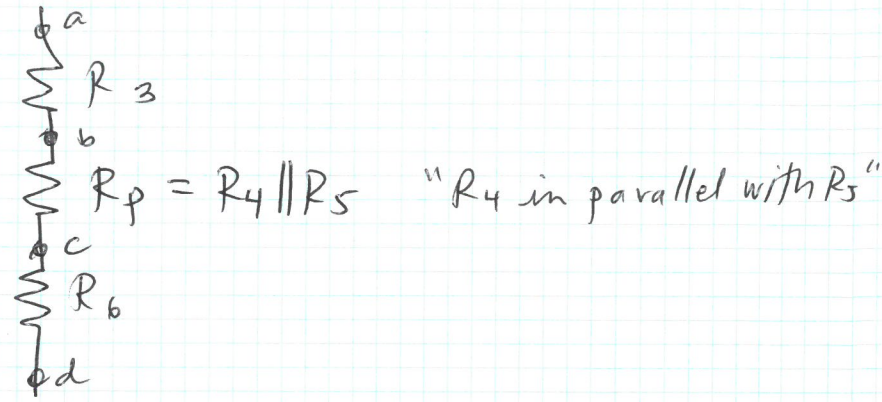 a
R3
b
Rp = R4 || R5 "R4 in parallel with R5"
c
R6
d